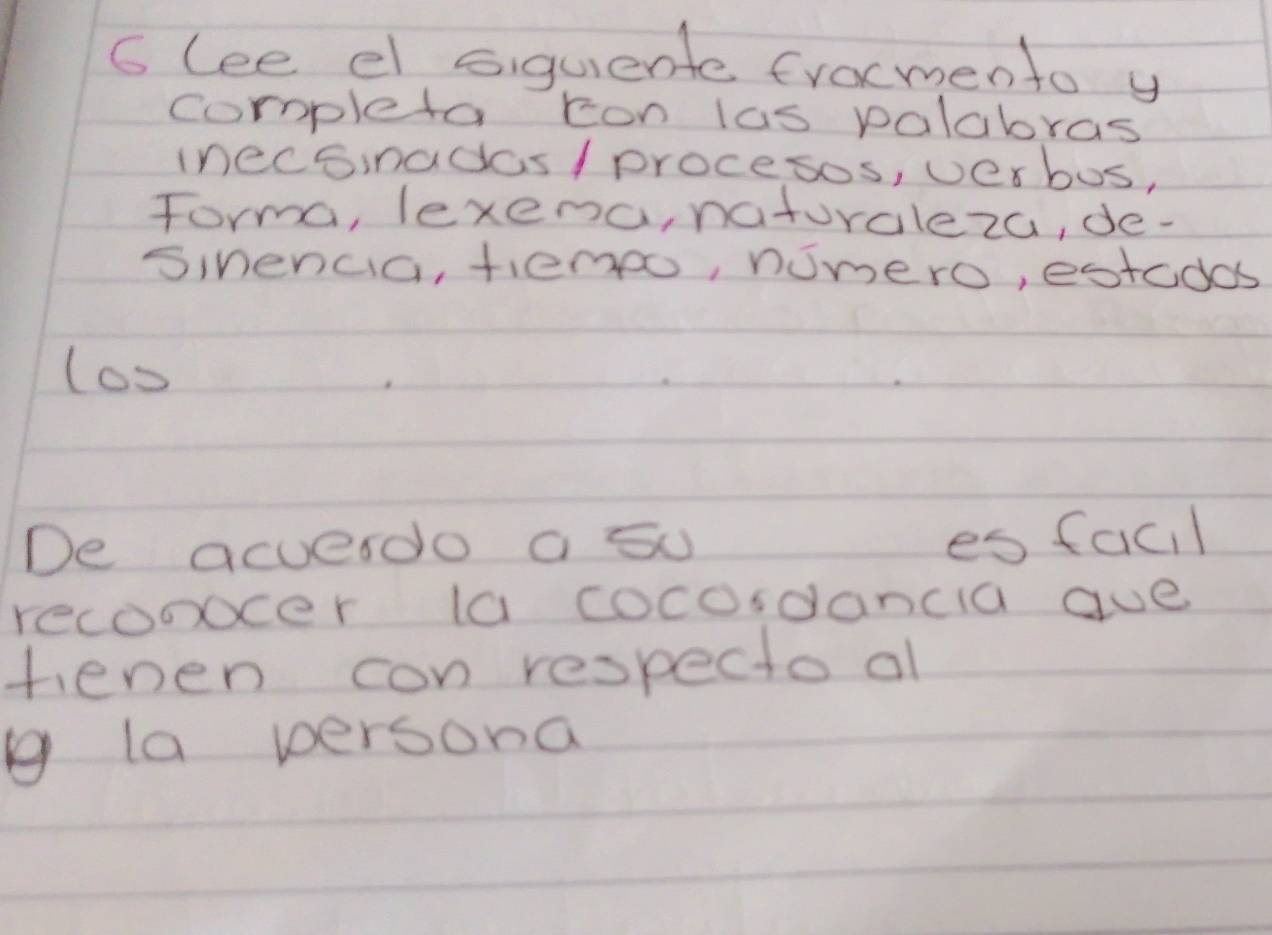 6 Lee el siguiente fracmento y
completa con las palabras
inecsinadas / procesos, verbos,
Forma, lexema, naturaleza, de-
sinencia, tiempo, número, estados
los . . .
De acuerdo a su es facil
reconocer la cocordancia que
tienen con respecto al
y la persona